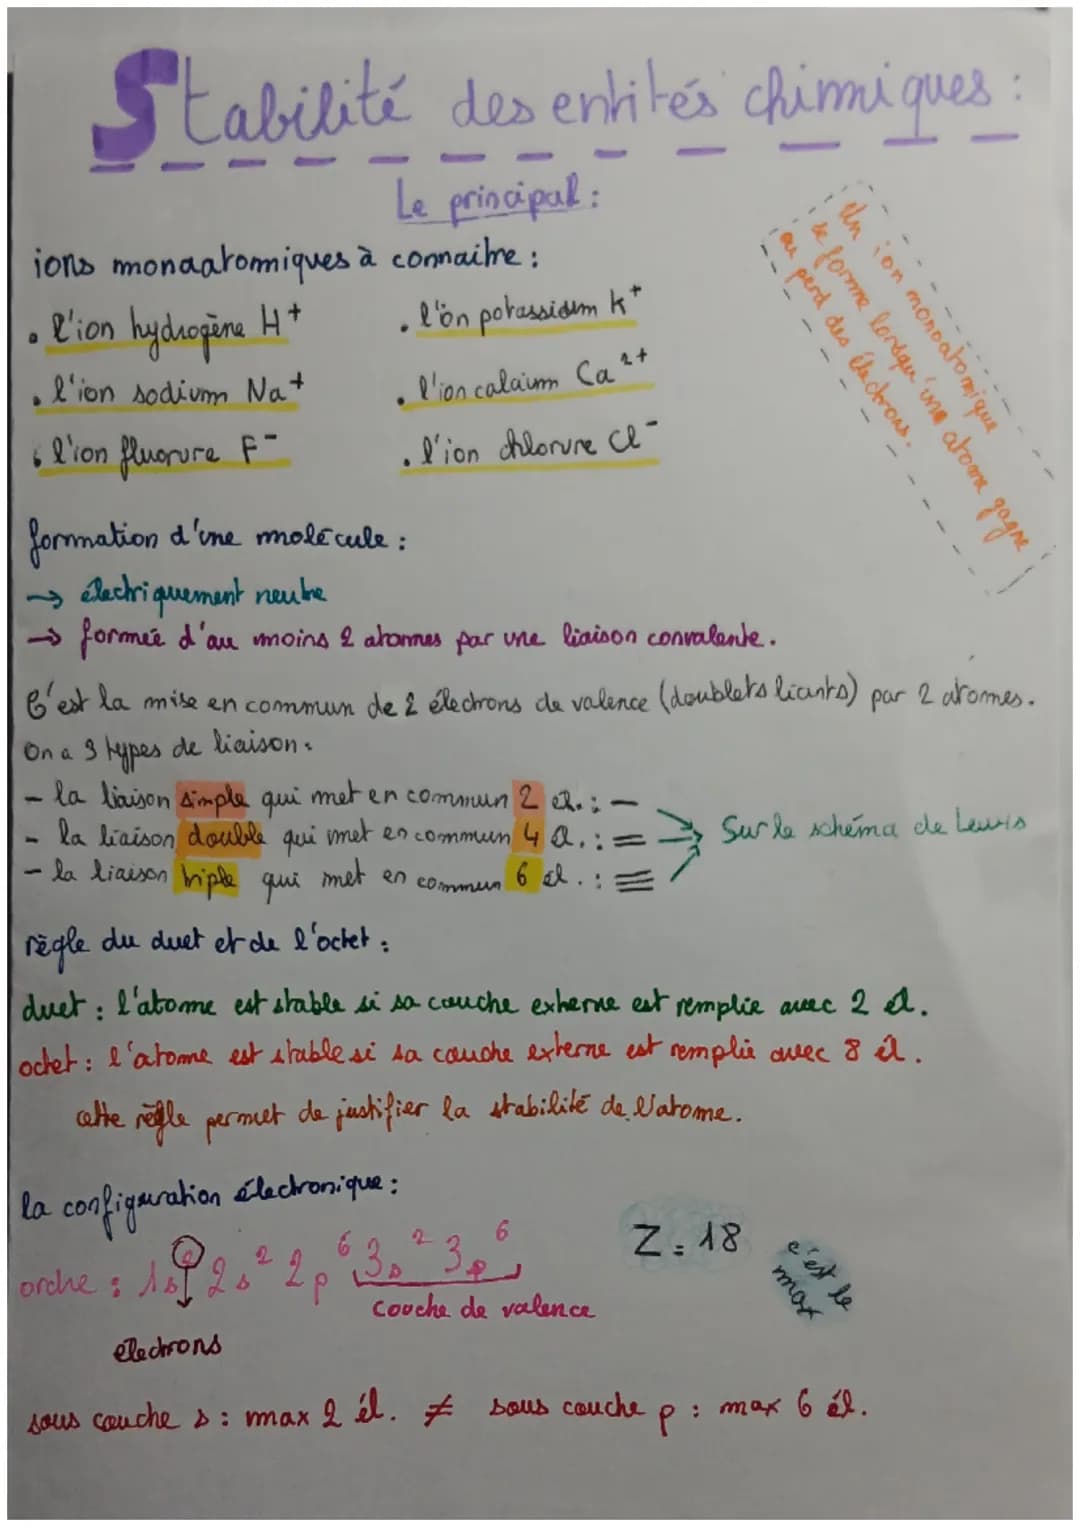 Stabilité des entités chimiques :
Le principal :
ions monoatomiques à connaitre :
• l'ion hydrogène H⁺
• l'ion potassium K⁺
• l'ion sodium Na⁺
• l'ion calcium Ca²⁺
• l'ion fluorure F⁻
• l'ion chlorure Cl⁻
Un ion monoatomique
se forme lorsqu'une atome gagne
ou perd des électrons.
formation d'une molécule :
→ électriquement neutre
→ formée d'au moins 2 atomes par une liaison convalente.
C'est la mise en commun de 2 électrons de valence (doublets liants) par 2 atomes.
On a 3 types de liaison :
- la liaison simple qui met en commun 2 él. : —
- la liaison double qui met en commun 4 él. : =
- la liaison triple qui met en commun 6 él. : ≡
Sur le schéma de Lewis
règle du duet et de l'octet :
duet : l'atome est stable si sa couche externe est remplie avec 2 él.
octet : l'atome est stable si sa couche externe est remplie avec 8 él.
cette règle permet de justifier la stabilité de l'atome.
la configuration électronique :
ordre : 1s² 2s² 2p⁶ 3s² 3p⁶
Z = 18
c'est le
max
couche de valence
électrons
sous couche s : max 2 él. ≠ sous couche p : max 6 él.